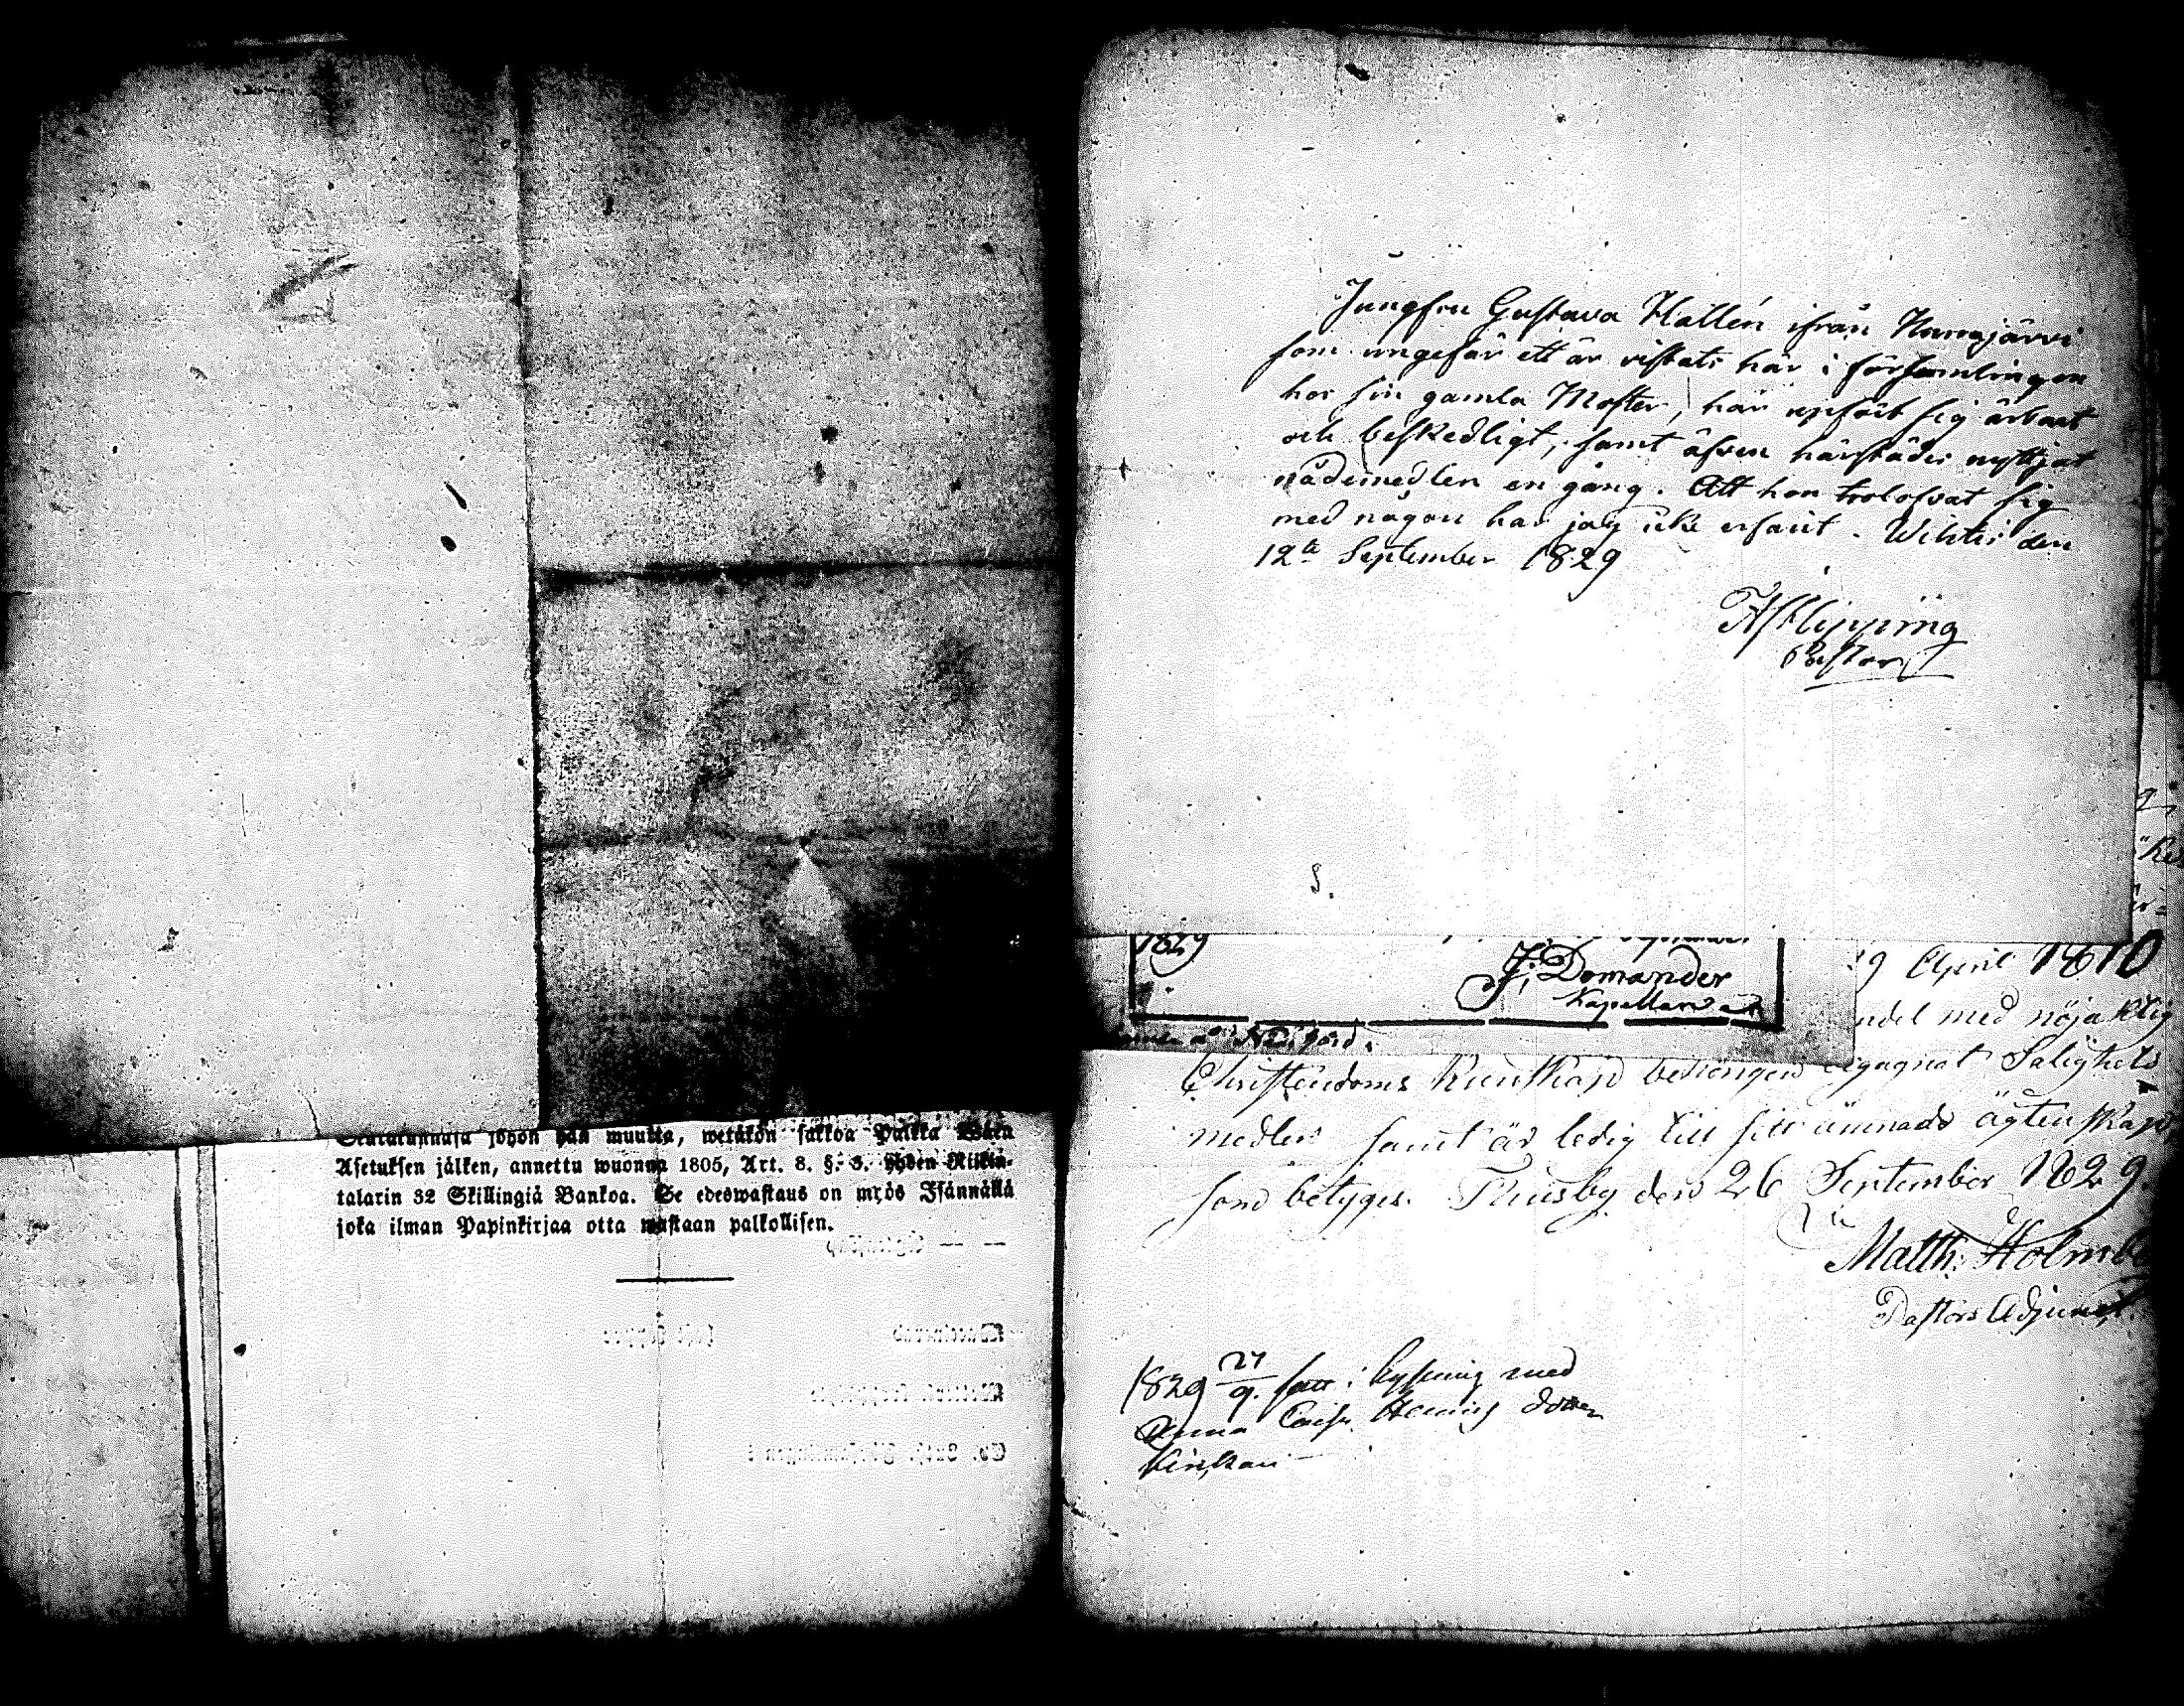 Jungfru Gustava Hallén ifrån Nurmijärvi
som ungefär ett år vistats här i församlingen
hos sin gamla Moster, har upfört sig ärbart
och beskedligt, samt äfven härstädes nyttjat
nådemedlen en gång. Att hon trolofvat sig
med någon har jag icke erfarit. Wihtis den
12te September 1829
Pastor
1829
J. Domander
Kapellan
9 April 1810
ndel med nöjaktig
Christendoms kunskap behörigen Salighets
medlen samt är ledig till sitt ämnade ägtenskap,
som betyges. Thusby den 26 September 1829.
Matth: Holmbe
Pastors Adjunct.
1829 27/9. lysning med
Anna dotter
muutta, wetäkön sakkoa Palkka
Asetuksen jälken, annettu wuonna 1805, Art. 8. §. 3. yhden Riikin-
talarin 32 Skillingiä Bankoa. Se edeswastaus on myös Isännällä
joka ilman Papinkirjaa otta wastaan palkollisen.